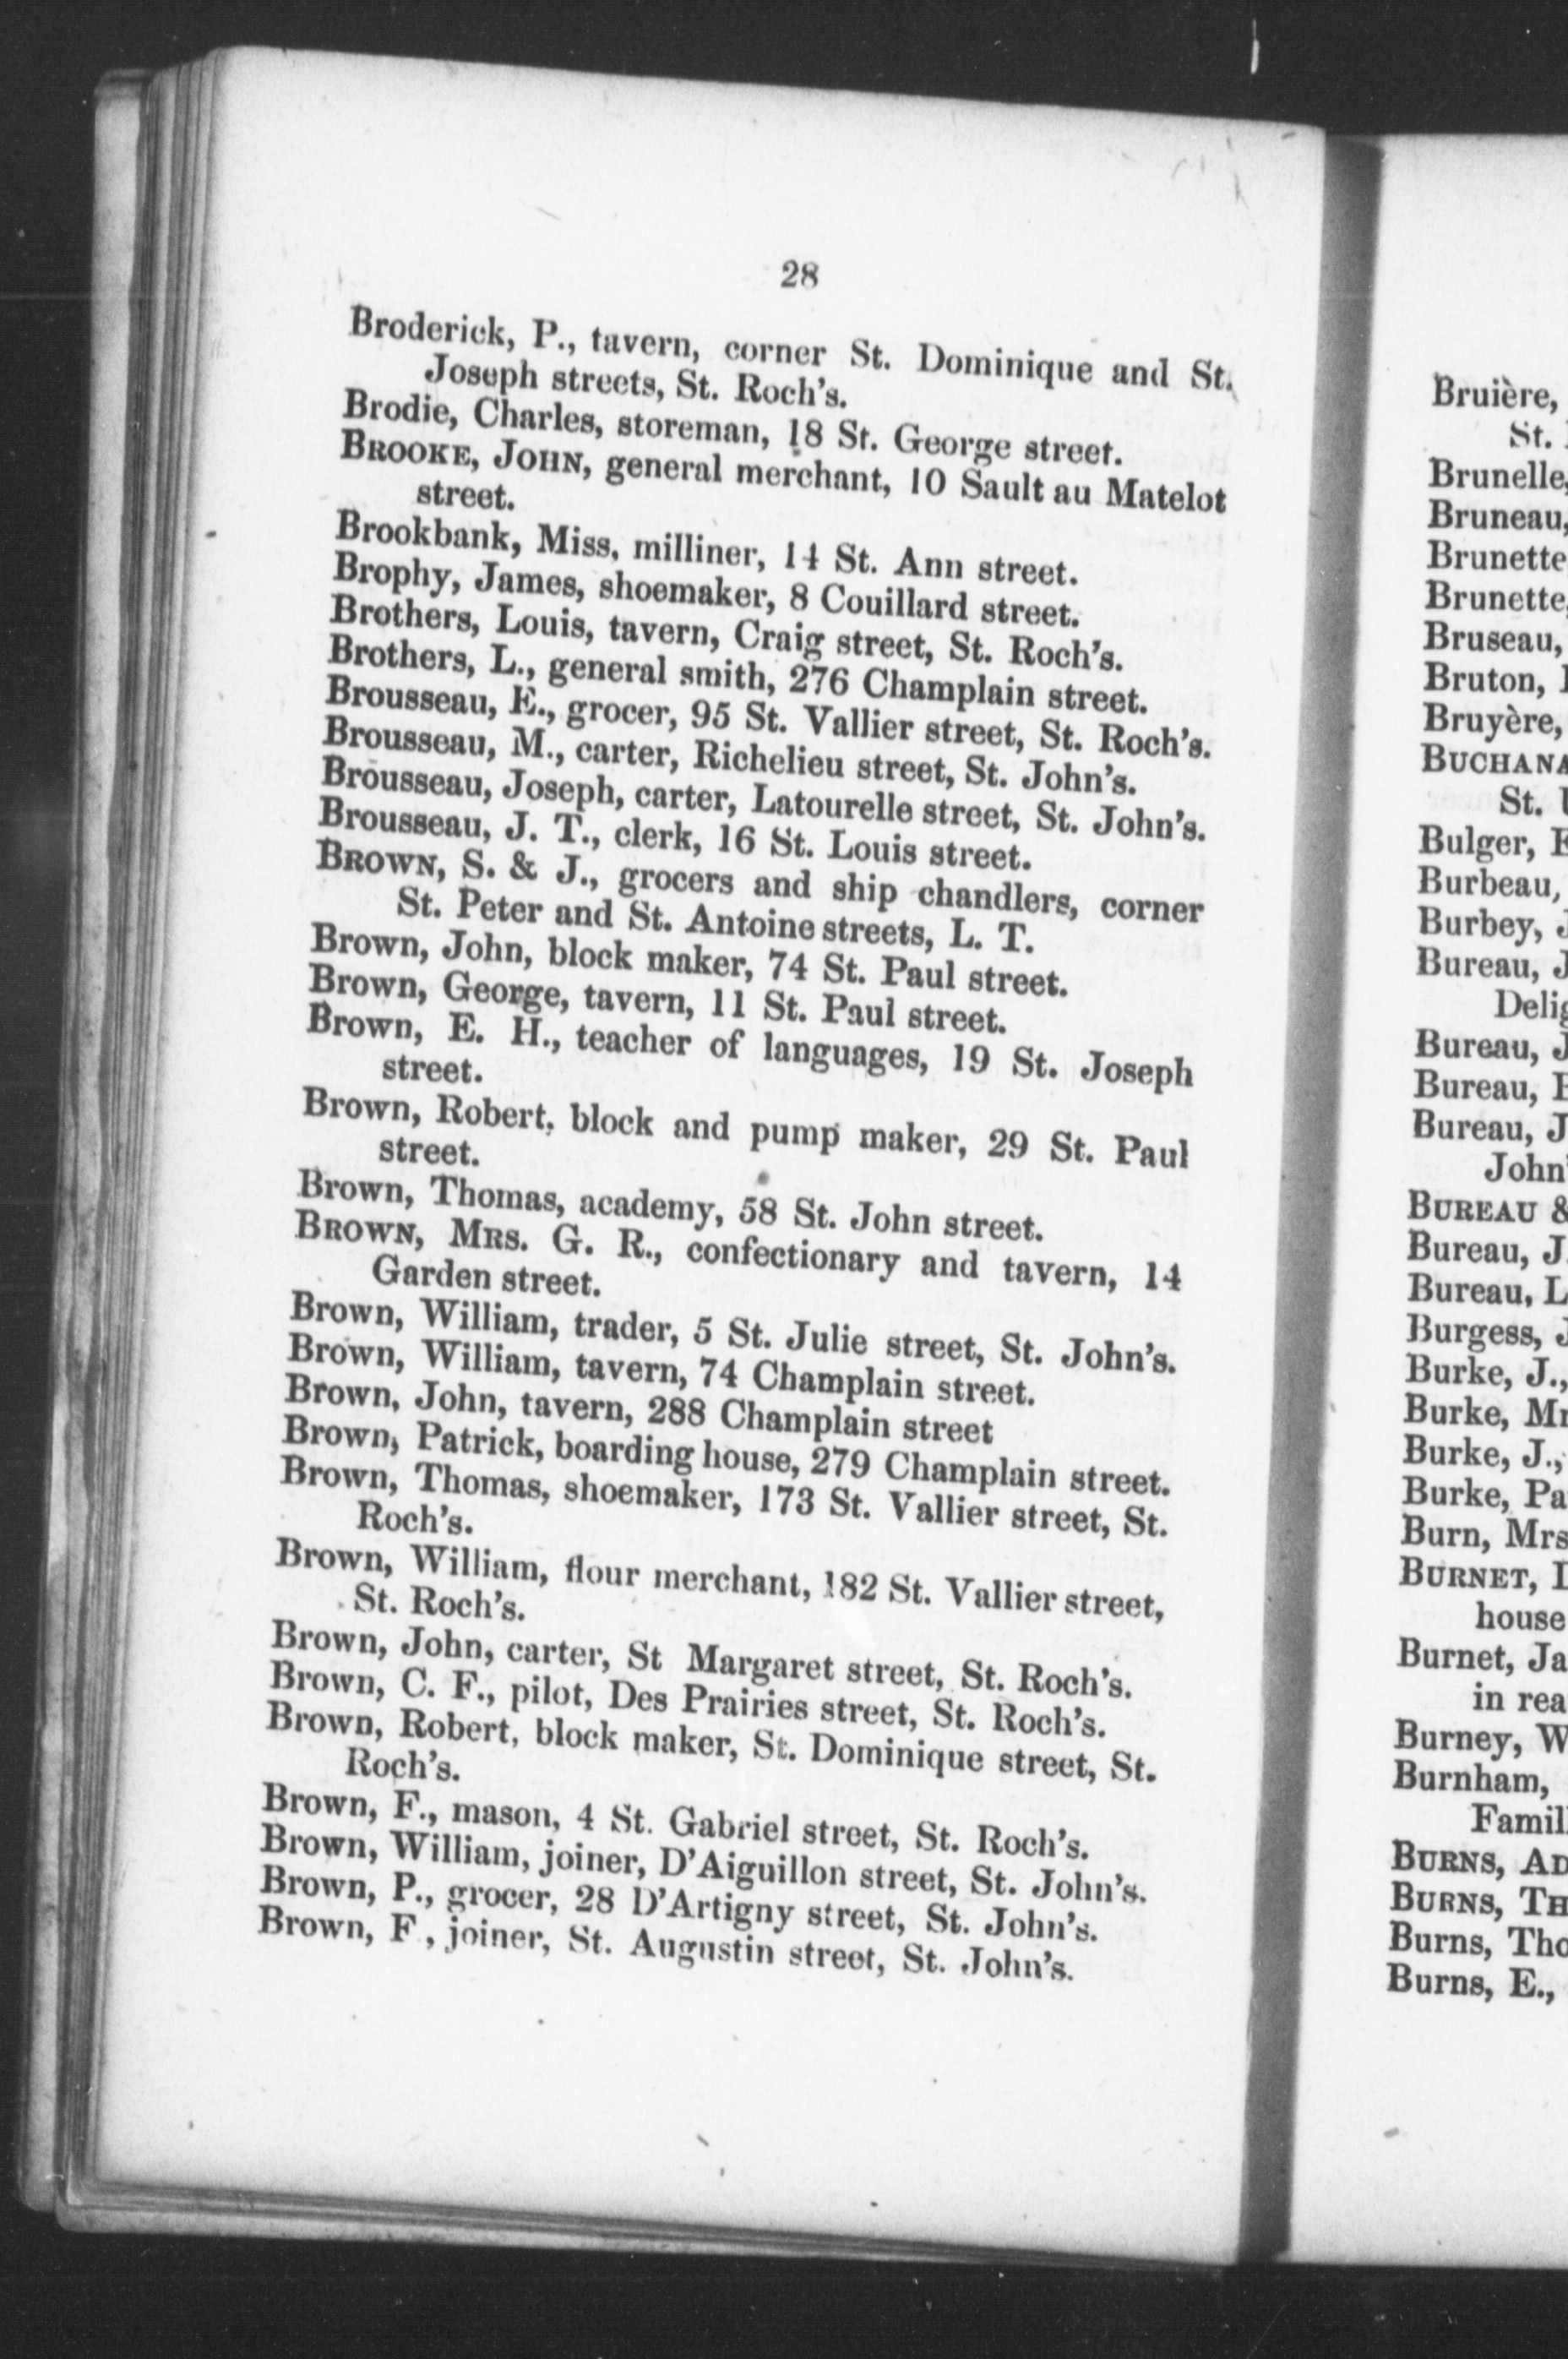 28
Broderick, P., tavern, corner St. Dominique and St.
Joseph streets, St. Roch's.
Brodie, Charles, storeman, 18 St. George street.
BROOKE, JOHN, general merchant, 10 Sault au Matelot
street.
Brookbank, Miss, milliner, 14 St. Ann street.
Brophy, James, shoemaker, 8 Couillard street.
Brothers, Louis, tavern, Craig street, St. Roch's.
Brothers, L., general smith, 276 Champlain street.
Brousseau, E., grocer, 95 St. Vallier street, St. Roch's.
Brousseau, M., carter, Richelieu street, St. John's.
Brousseau, Joseph, carter, Latourelle street, St. John's.
Brousseau, J. T., clerk, 16 St. Louis street.
BROWN, S. & J., grocers and ship chandlers, corner
St. Peter and St. Antoine streets, L. T.
Brown, John, block maker, 74 St. Paul street.
Brown, George, tavern, 11 St. Paul street.
Brown, E. H., teacher of languages, 19 St. Joseph
street.
Brown, Robert, block and pump maker, 29 St. Paul
street.
Brown, Thomas, academy, 58 St. John street.
BROWN, MRS. G. R., confectionary and tavern, 14
Garden street.
Brown, William, trader, 5 St. Julie street, St. John's.
Brown, William, tavern, 74 Champlain street.
Brown, John, tavern, 288 Champlain street
Brown, Patrick, boarding house, 279 Champlain street.
Brown, Thomas, shoemaker, 173 St. Vallier street, St.
Roch's.
Brown, William, flour merchant, 182 St. Vallier street,
St. Roch's.
Brown, John, carter, St Margaret street, St. Roch's.
Brown, C. F., pilot, Des Prairies street, St. Roch's.
Brown, Robert, block maker, St. Dominique street, St.
Roch's.
Brown, F., mason, 4 St. Gabriel street, St. Roch's.
Brown, William, joiner, D'Aiguillon street, St. John's.
Brown, P., grocer, 28 D'Artigny street, St. John's.
Brown, F., joiner, St. Augustin street, St. John's.
Bruière,
St.
Brunelle,
Bruneau,
Brunette
Brunette,
Bruseau,
Bruton,
Bruyère,
BUCHANA
St.
Bulger,
Burbeau,
Burbey, J
Bureau, J
Delig
Bureau, J
Bureau,
Bureau, J
John'
BUREAU &
Bureau, J.
Bureau, L
Burgess, J
Burke, J.,
Burke, Mr
Burke, J.,
Burke, Pa
Burn, Mrs
BURNET,
house
Burnet, Ja
in rea
Burney, W
Burnham,
Famil
BURNS, AD
BURNS, TH
Burns, Tho
Burns, E.,